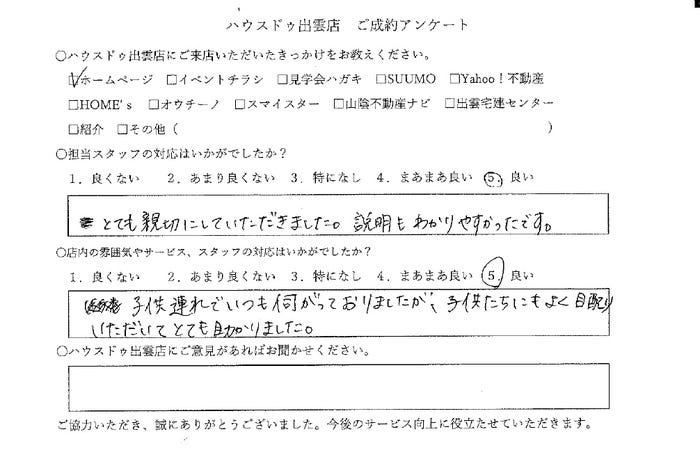 ハウスドゥ出雲店 ご成約アンケート
○ハウスドゥ出雲店にご来店いただいたきっかけをお教えください。
☑ホームページ □イベントチラシ □見学会ハガキ □SUUMO □Yahoo！不動産
□HOME's □オウチーノ □スマイスター □山陰不動産ナビ □出雲宅建センター
□紹介 □その他（ ）
○担当スタッフの対応はいかがでしたか？
1．良くない 2．あまり良くない 3．特になし 4．まあまあ良い 5．良い
とても親切にしていただきました。説明もわかりやすかったです。
○店内の雰囲気やサービス、スタッフの対応はいかがでしたか？
1．良くない 2．あまり良くない 3．特になし 4．まあまあ良い 5．良い
子供連れでいつも伺がっておりましたが、子供たちにもよく目配り
いただいてとても助かりました。
○ハウスドゥ出雲店にご意見があればお聞かせください。
ご協力いただき、誠にありがとうございました。今後のサービス向上に役立たせていただきます。